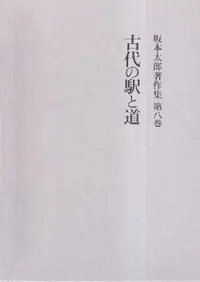 坂本太郎著作集 第八巻
古代の駅と道